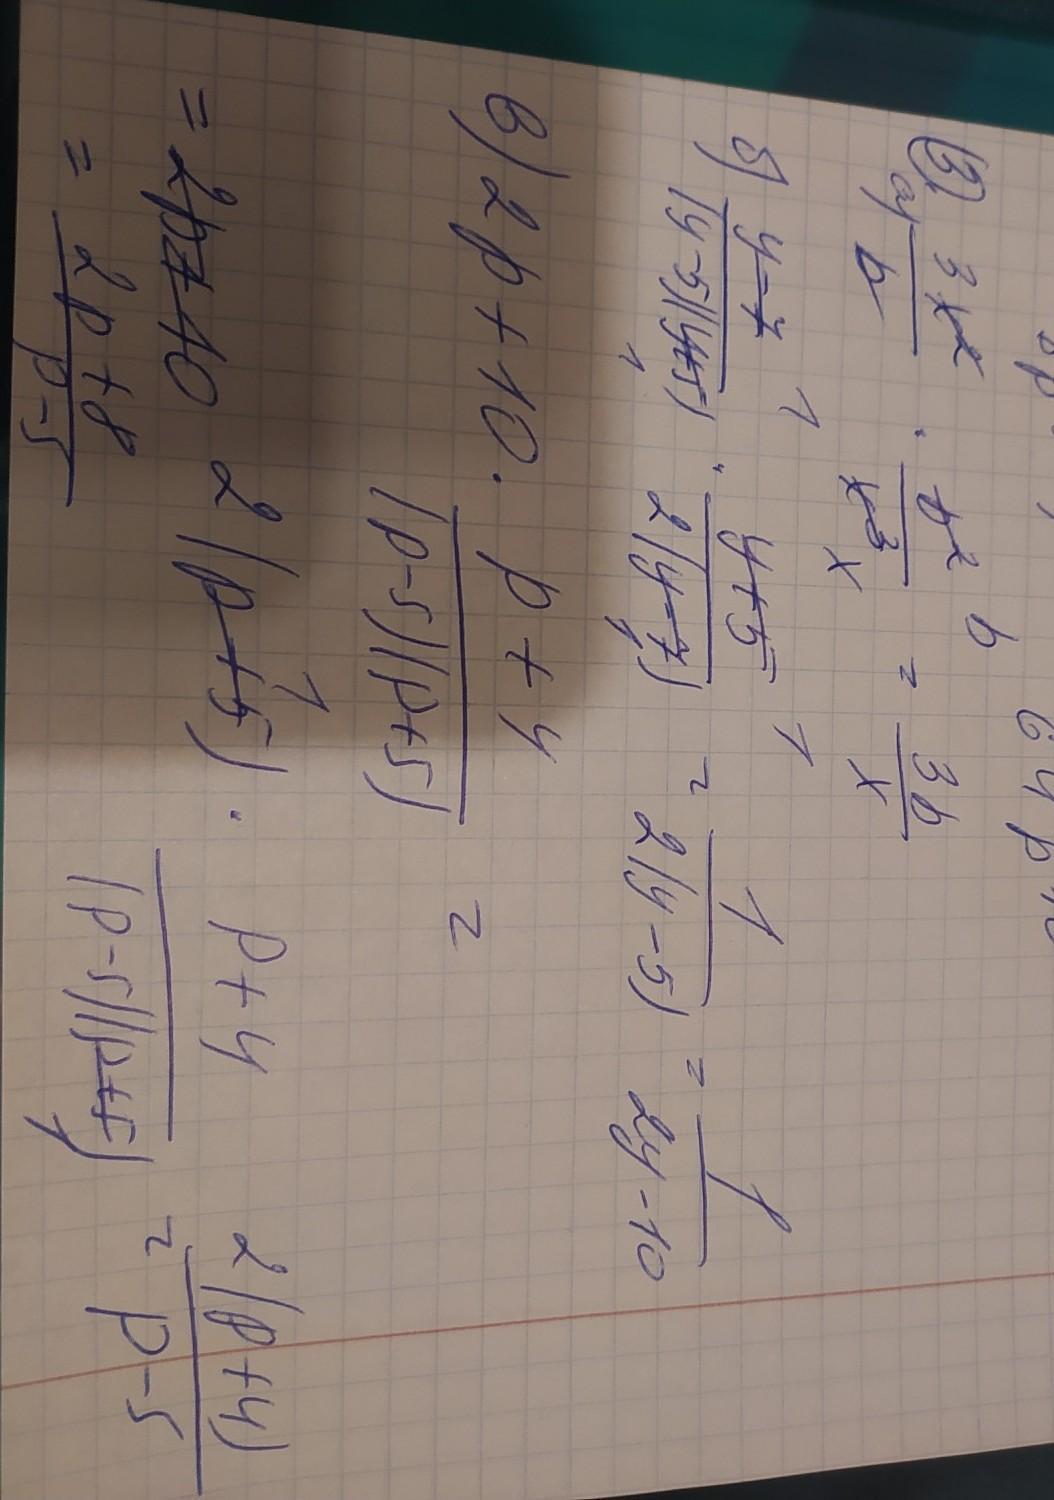 ③
а) 3x²/b · b²/x³ = 3b/x
б) y-7/(y-5)(y+5) · y+5/2(y-7) = 1/2(y-5) = 1/2y-10
в) 2p+10 · p+4/(p-5)(p+5) =
= 2(p+5) · p+4/(p-5)(p+5) = 2(p+4)/p-5
= 2p+8/p-5